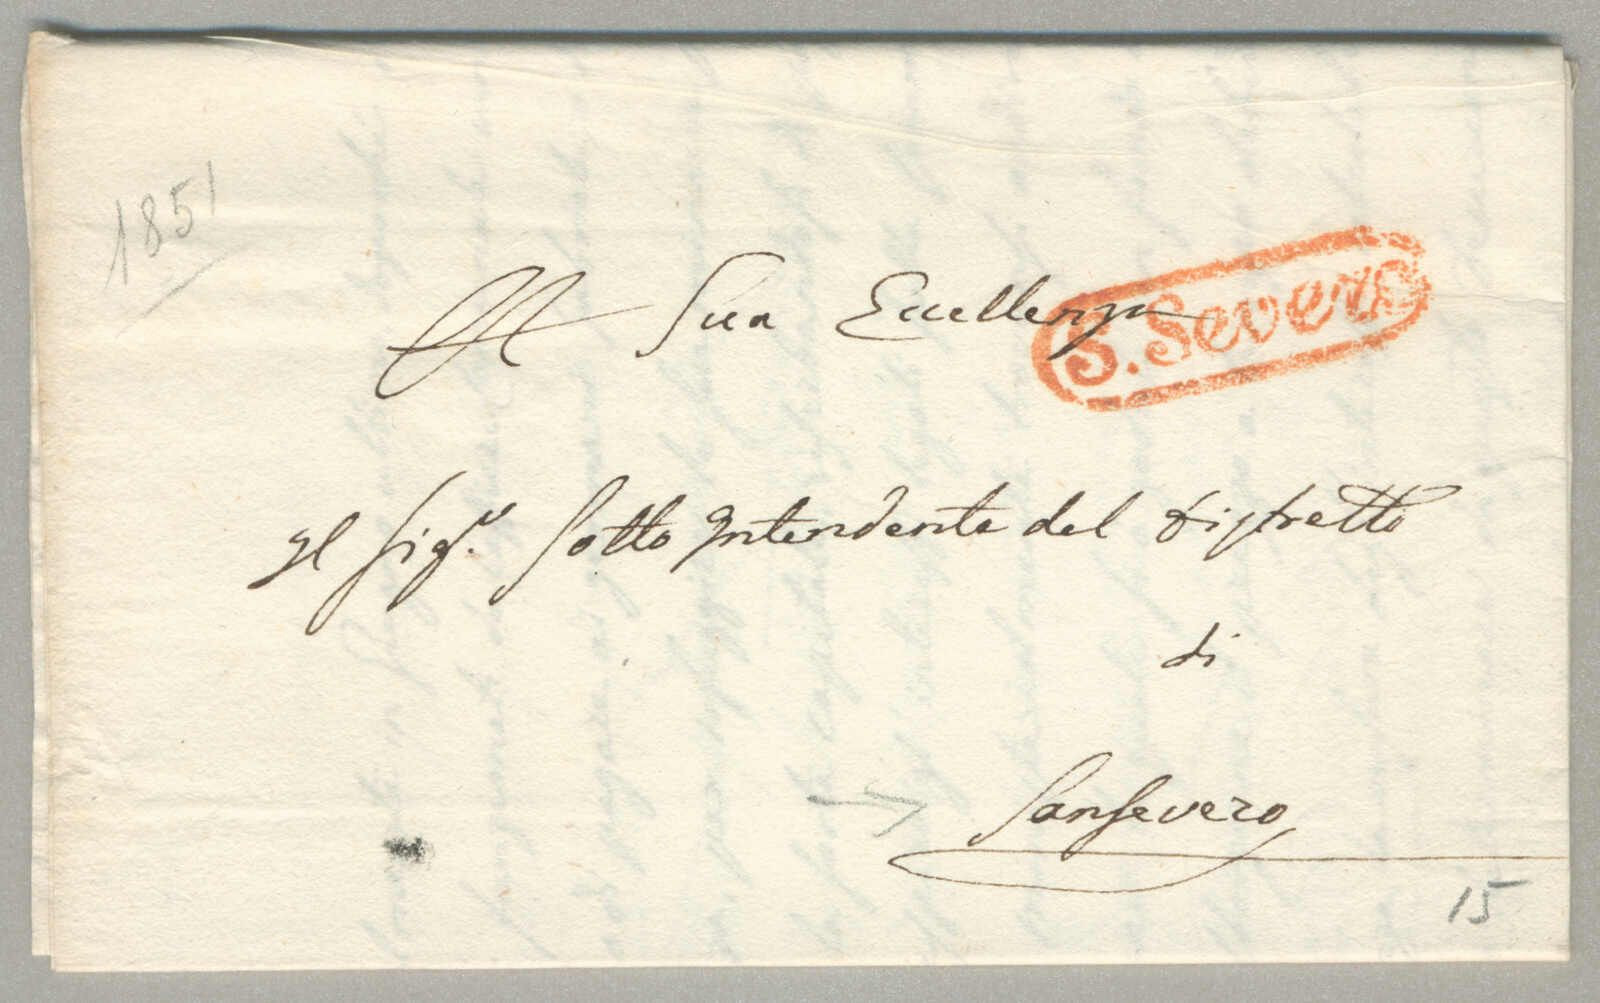 1851
A Sua Eccellenza
S. Severo
Il Sigr. Sotto Intendente del Distretto
di
Sansevero
15